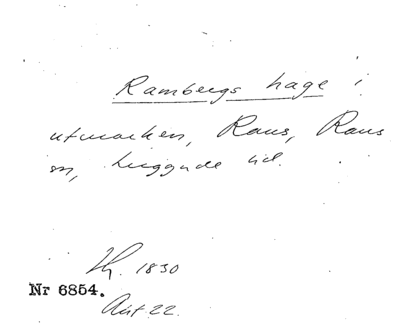 Rambergs hage i
utmarken, Raus, Raus
sn, Luggude hd.
Lh. 1830
Nr 6854.
Akt 22.